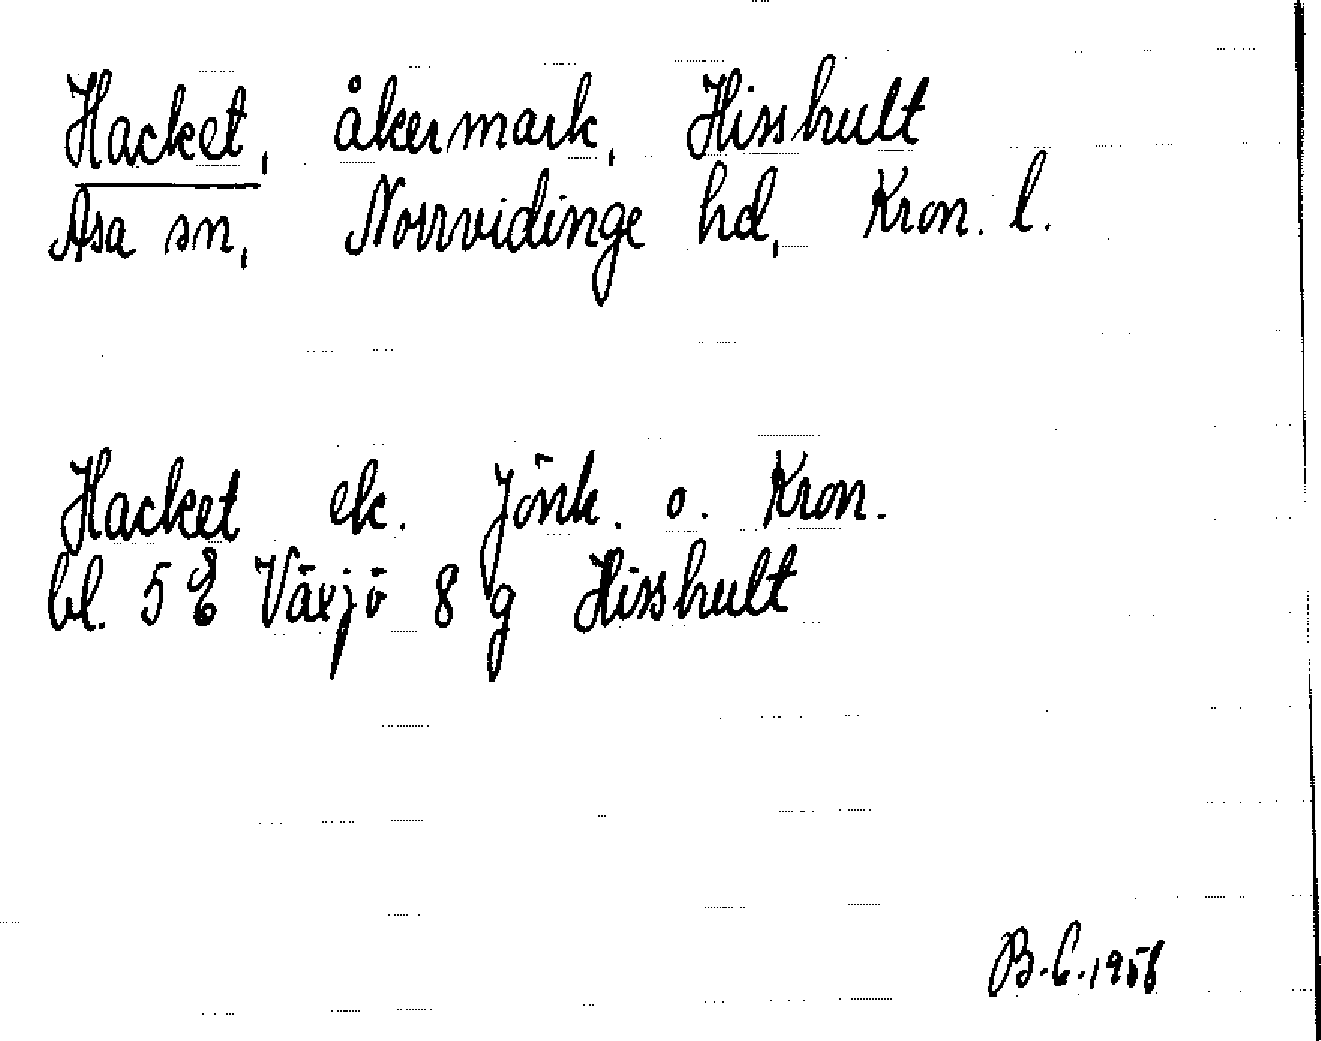 Hacket, åkermark, Hisshult
Asa sn, Norrvidinge hd, Kron. l.
Hacket ek. Jönk. o. Kron.
bl. 5 E Växjö 8 g Hisshult
B.C. 1956